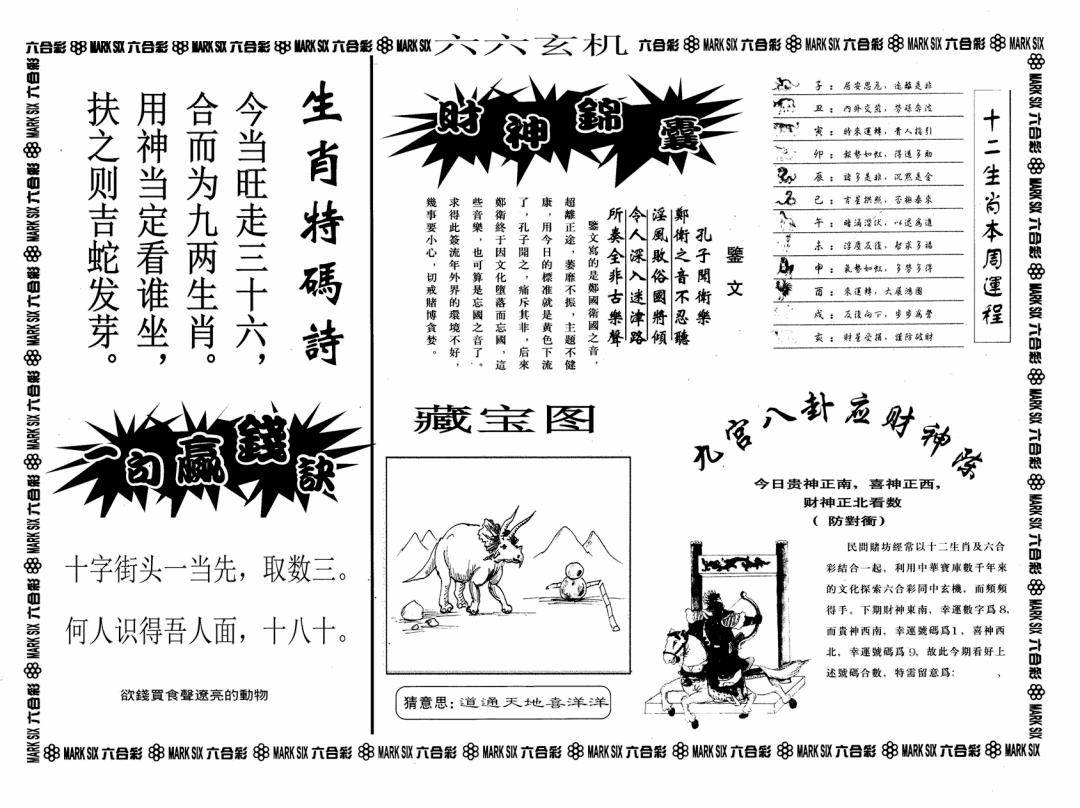 六合彩 MARK SIX 六合彩 MARK SIX 六合彩 MARK SIX 六合彩 MARK SIX 六六玄机 六合彩 MARK SIX 六合彩 MARK SIX 六合彩 MARK SIX 六合彩 MARK SIX
生肖特碼詩
今当旺走三十六，
合而为九两生肖。
用神当定看谁坐，
扶之则吉蛇发芽。
一句贏錢訣
十字街头一当先，取数三。
何人识得吾人面，十八十。
欲錢買食聲遼亮的動物
財神錦囊
鑒文
孔子聞衛樂
鄭衛之音不忍聽
淫風敗俗國將傾
令人深入迷津路
所奏全非古樂聲
鑒文寫的是鄭國衛國之音，
超離正途，萎靡不振，主題不健
康，用今日的標准就是黃色下流
了，孔子聞之，痛斥其非，后來
鄭衛終于因文化墮落而忘國，這
些音樂，也可算是忘國之音了。
求得此簽流年外界的環境不好，
幾事要小心，切戒賭博貪婪。
十二生肖本周運程
子：居安思危，遠離是非
丑：內外交煎，勞碌奔波
寅：時來運轉，貴人指引
卯：銀勢如虹，得道多助
辰：諸多是非，沉默是金
巳：吉星拱照，否極泰來
午：暗涌潛伏，以退爲進
未：浮度反復，智求多福
申：氣勢如虹，多勞多得
酉：來運轉，大展鴻圖
戌：反復向下，步步爲營
亥：財星受損，謹防破財
藏宝图
猜意思：道通天地喜洋洋
九宫八卦应财神素
今日贵神正南，喜神正西，
财神正北看数
（防對衝）
民間賭坊經常以十二生肖及六合
彩結合一起，利用中華寶庫數千年來
的文化探索六合彩同中玄機，而頻頻
得手。下期財神東南，幸運數字爲8，
而貴神西南，幸運號碼爲1，喜神西
北，幸運號碼爲9，故此今期看好上
述號碼合數，特需留意爲：，
MARK SIX 六合彩 MARK SIX 六合彩 MARK SIX 六合彩 MARK SIX 六合彩 MARK SIX 六合彩 MARK SIX 六合彩 MARK SIX 六合彩 MARK SIX 六合彩 MARK SIX 六合彩 MARK SIX